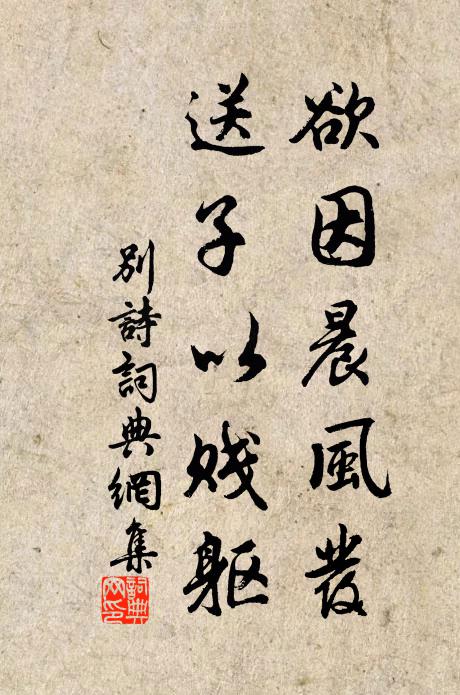 欲因晨風發
送子以賤軀
別詩詞典網集
詞典網印